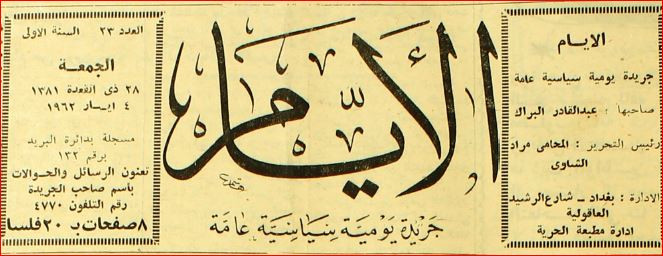 الايام
جريدة يومية سياسية عامة
صاحبها : عبدالقادر البراك
رئيس التحرير : المحامى مراد
الشاوى
الادارة : بغداد ــ شارع الرشيد
العاقولية
ادارة مطبعة الحرية
الأيام
جريدة يومية سياسية عامة
العدد ٢٣ السنة الاولى
الجمعـة
٢٨ ذى القعدة ١٣٨١
٤ ايـار ١٩٦٢
مسجلة بدائرة البريد
برقم ١٣٢
تعنون الرسائل والحوالات
باسم صاحب الجريدة
رقم التلفون ٤٧٧٠
٨ صفحات بـ ٢٠ فلسا